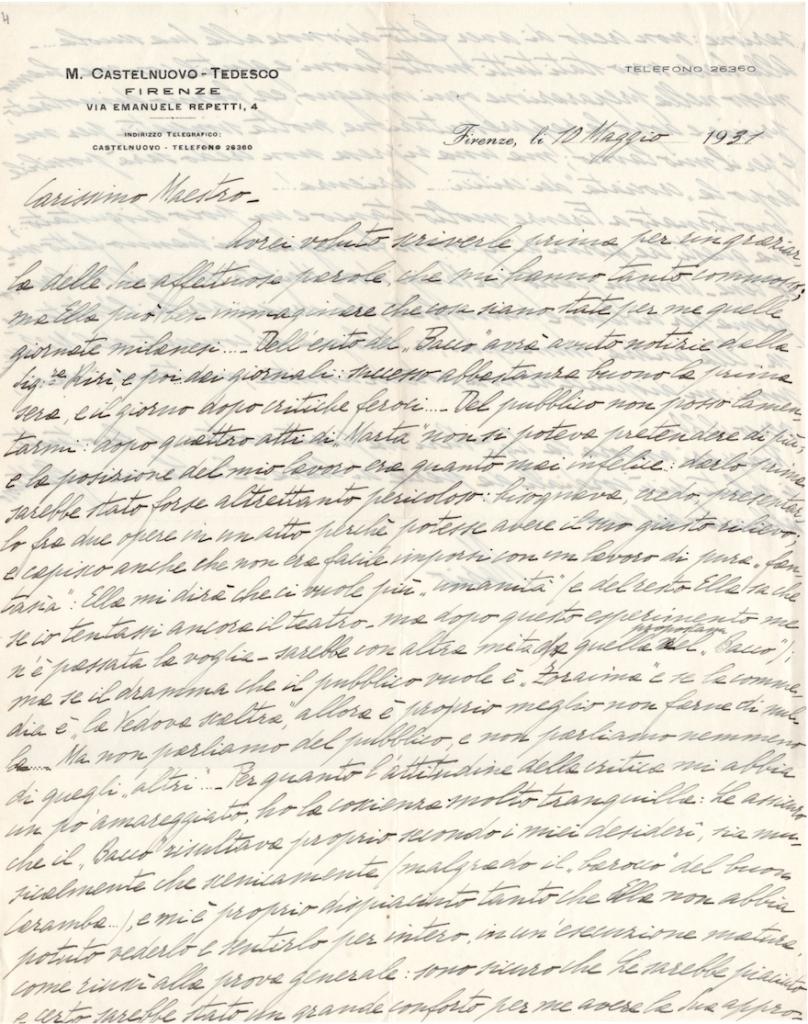 4
M. CASTELNUOVO-TEDESCO
FIRENZE
VIA EMANUELE REPETTI, 4
INDIRIZZO TELEGRAFICO:
CASTELNUOVO - TELEFONO 26360
TELEFONO 26360
Firenze, li 10 Maggio 1931
Carissimo Maestro -
Avrei voluto scriverle prima per ringraziar-
la delle Sue affettuose parole, che mi hanno tanto commosso;
ma Ella può ben immaginare che cosa siano state per me quelle
giornate milanesi.... Dell'esito del „Bacco" avrà avuto notizie dalla
Sig.ra e poi dai giornali: successo abbastanza buono la prima
sera, e il giorno dopo critiche feroci.... Del pubblico non posso lamen-
tarmi: dopo quattro atti di „Marta" non si poteva pretendere di più,
e la posizione del mio lavoro era quanto mai infelice: darlo prima
sarebbe stato forse altrettanto pericoloso: bisognava, credo, presentar-
lo fra due opere in un atto perchè potesse avere il suo giusto rilievo;
e capisco anche che non era facile imporsi con un lavoro di pura „fan-
tasia": Ella mi dirà che ci vuole più „umanità" (e del resto Ella sa che
se io tentassi ancora il teatro - ma dopo questo esperimento me
n'è passata la voglia - sarebbe con altra mèta da quella del „Bacco");
ma se il dramma che il pubblico vuole è „ e se la comme-
dia è „la Vedova scaltra", allora è proprio meglio non farne di nul-
la.... Ma non parliamo del pubblico, e non parliamo nemmeno
di quegli „altri".... Per quanto l'attitudine della critica mi abbia
un po' amareggiato, ho la coscienza molto tranquilla: Le assicuro
che il „Bacco" risultava proprio secondo i miei desideri, sia mu-
sicalmente che scenicamente (malgrado il „barocco" del buon
Caramba...), e mi è proprio dispiaciuto tanto che Ella non abbia
potuto vederlo e sentirlo per intero, in un'esecuzione matura
come riuscì alla prova generale: sono sicuro che Le sarebbe piaciuto
e certo sarebbe stato un grande conforto per me avere la Sua appro-